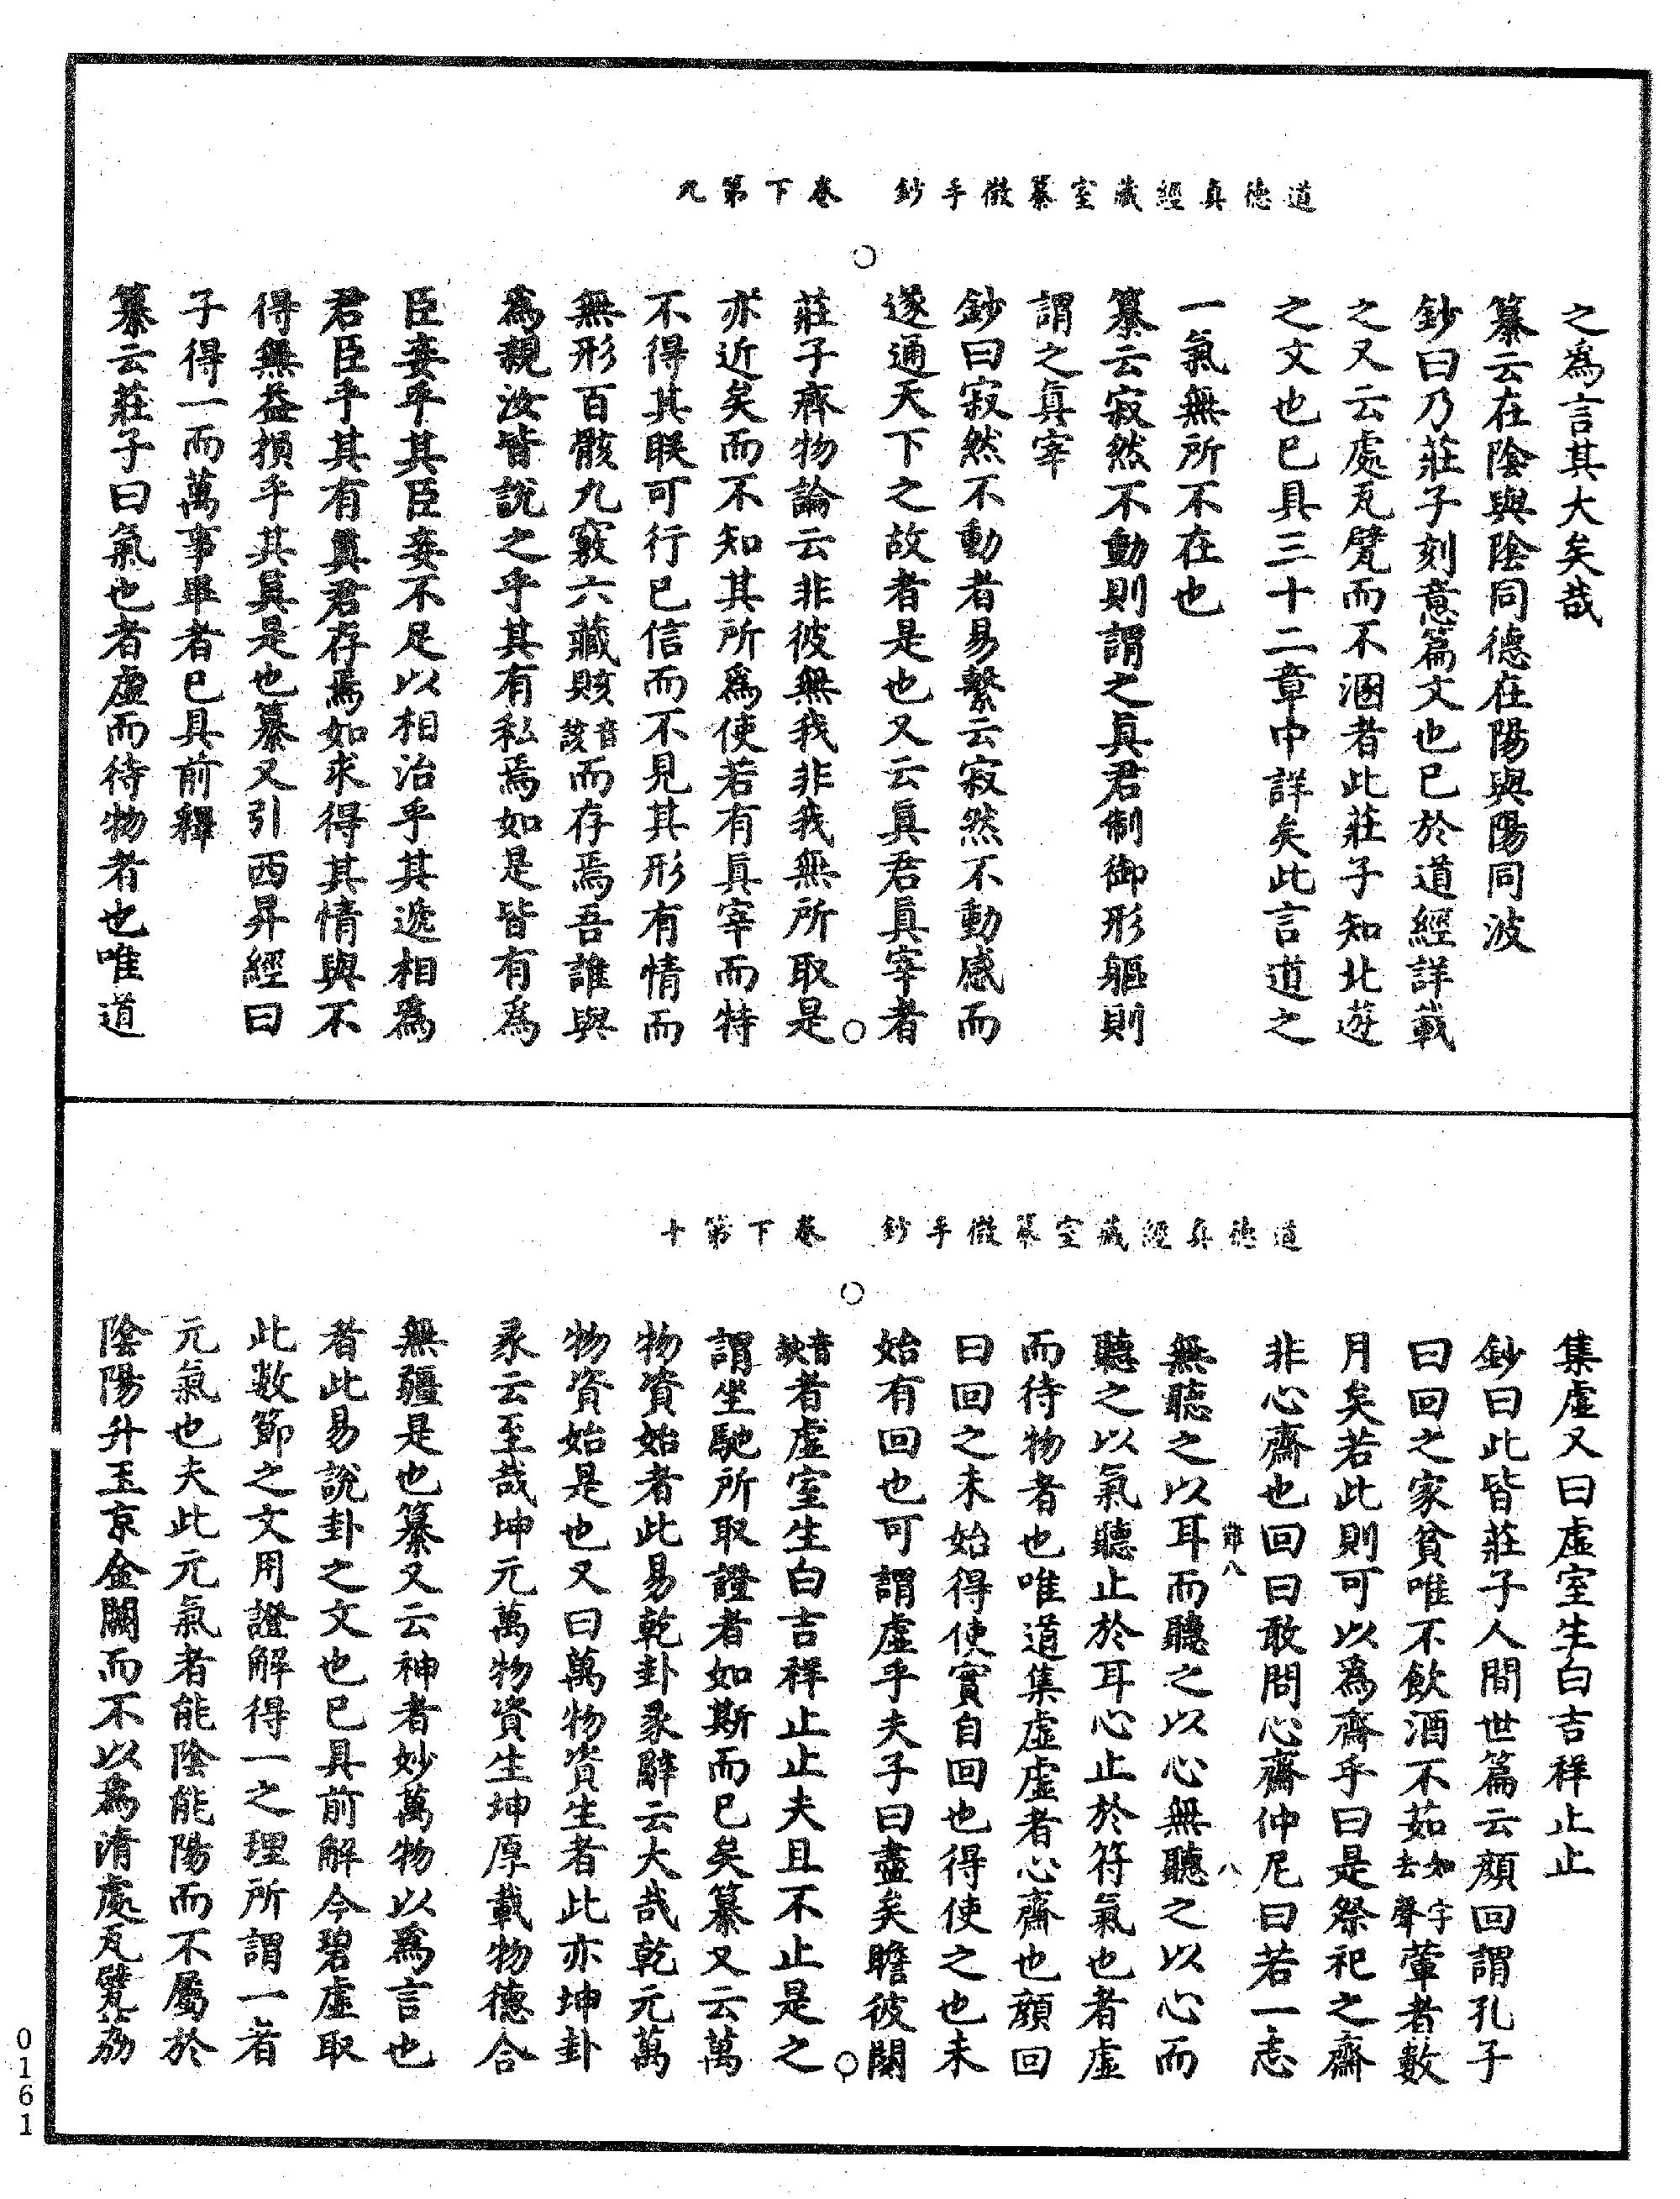 道德真經藏室纂微手鈔　卷下第九
之爲言其大矣哉
纂云在陰與陰同德在陽與陽同波
鈔曰乃莊子刻意篇文也已於道經詳載
之又云處瓦甓而不溷者此莊子知北遊
之文也已具三十二章中詳矣此言道之
一氣無所不在也
纂云寂然不動則謂之真君制御形軀則
謂之真宰
鈔曰寂然不動者易繫云寂然不動感而
遂通天下之故者是也又云真君真宰者
莊子齊物論云非彼無我非我無所取是
亦近矣而不知其所爲使若有真宰而特
不得其眹可行已信而不見其形有情而
無形百骸九竅六藏賅音該而存焉吾誰與
爲親汝皆說之乎其有私焉如是皆有爲
臣妾乎其臣妾不足以相治乎其遞相爲
君臣乎其有真君存焉如求得其情與不
得無益損乎其真是也纂又引西昇經曰
子得一而萬事畢者已具前釋
纂云莊子曰氣也者虛而待物者也唯道
道德真經藏室纂微手鈔　卷下第十
集虛又曰虛室生白吉祥止止
鈔曰此皆莊子人間世篇云顏回謂孔子
曰回之家貧唯不飲酒不茹如字去聲葷者數
月矣若此則可以爲齋乎曰是祭祀之齋
非心齋也回曰敢問心齋仲尼曰若一志
無聽之以耳而聽之以心無聽之以心而
聽之以氣聽止於耳心止於符氣也者虛
而待物者也唯道集虛虛者心齋也顏回
曰回之未始得使實自回也得使之也未
始有回也可謂虛乎夫子曰盡矣瞻彼闋
音缺者虛室生白吉祥止止夫且不止是之
謂坐馳所取證者如斯而已矣纂又云萬
物資始者此易乾卦彖辭云大哉乾元萬
物資始是也又曰萬物資生者此亦坤卦
彖云至哉坤元萬物資生坤厚載物德合
無疆是也纂又云神者妙萬物以爲言也
者此易說卦之文也已具前解今碧虛取
此數節之文用證解得一之理所謂一者
元氣也夫此元氣者能陰能陽而不屬於
陰陽升玉京金闕而不以爲清處瓦甓荔
0161